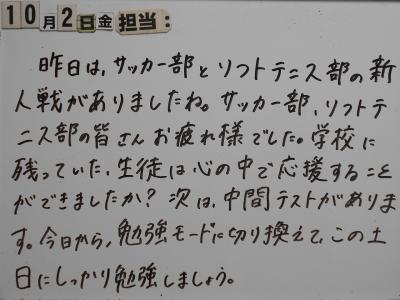 10月2日金 担当:
昨日は、サッカー部とソフトテニス部の新
人戦がありましたね。サッカー部、ソフトテ
ニス部の皆さんお疲れ様でした。学校に
残っていた、生徒は心の中で応援すること
ができましたか?次は、中間テストがありま
す。今日から、勉強モードに切り換えて、この土
日にしっかり勉強しましょう。